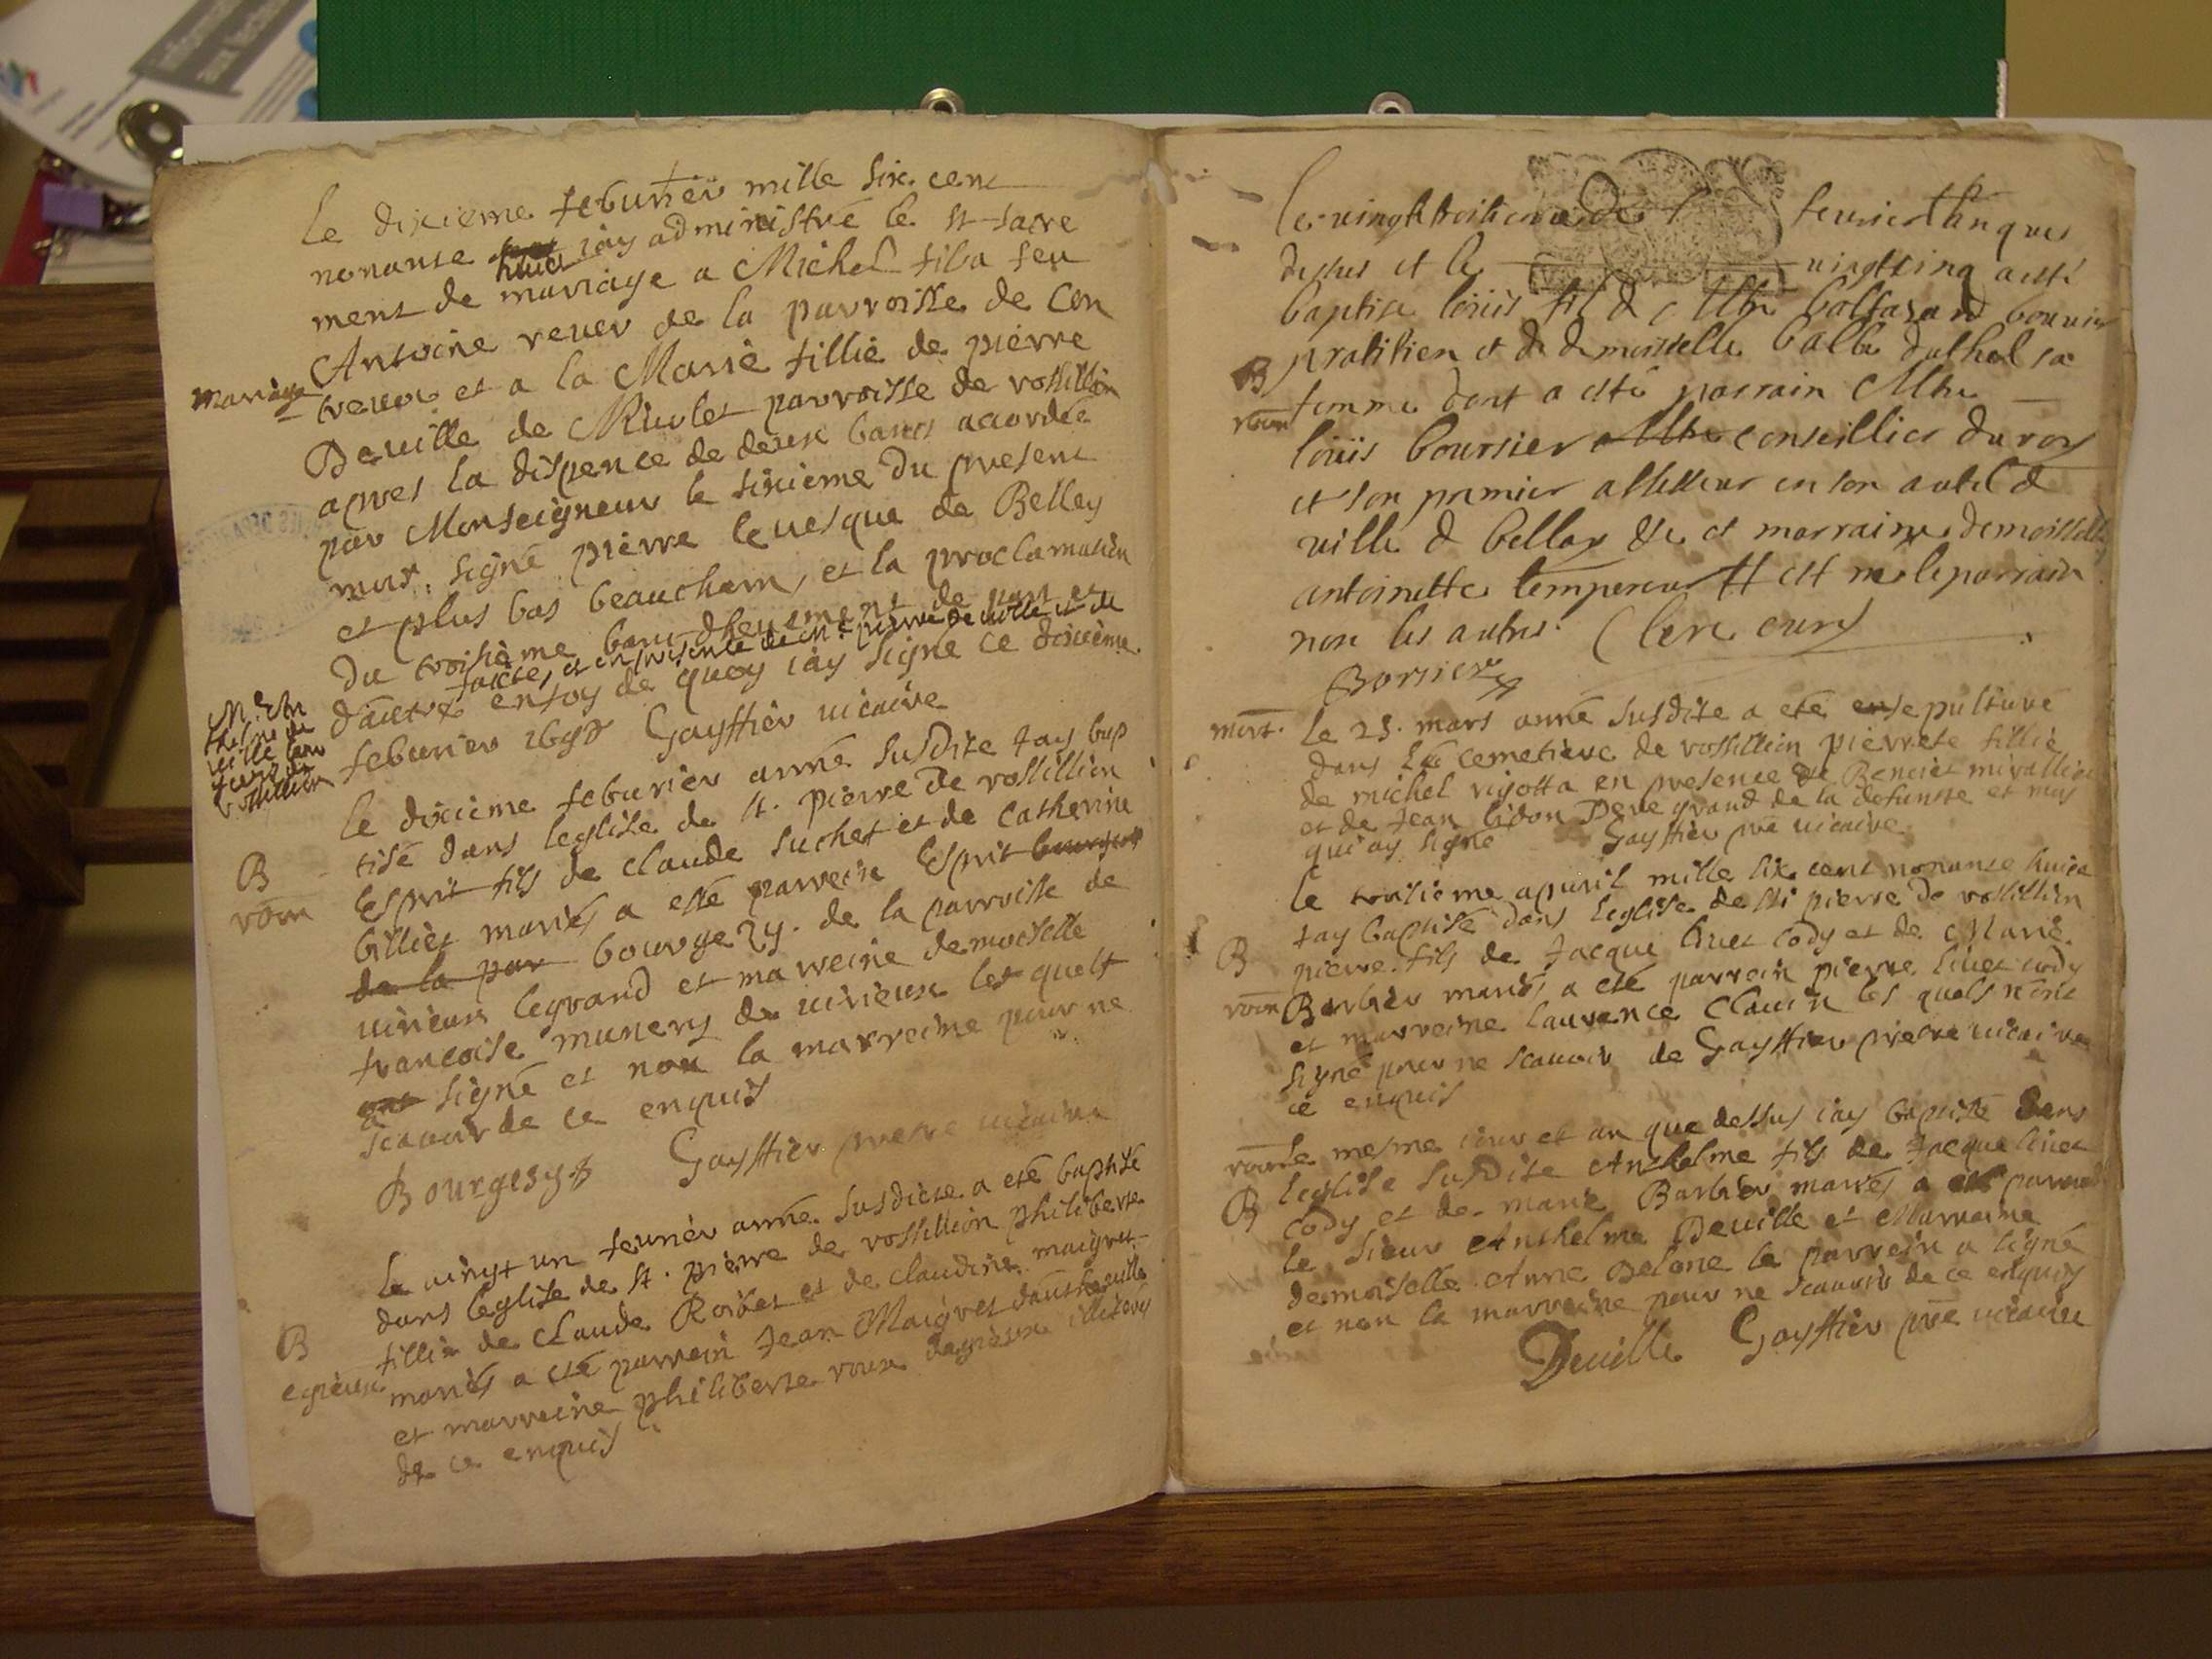 Le dixieme feburier mille six cent
nonante huict iay administré le st sacre
ment de mariage a Michel fils a feu
Antoine reuer de la parroisse de Con
treuou et a la Marie fillie de pierre
mariage
Deuille de Riuolet parroisse de rossillion
apres la dispence de deux bancs acordée
par Monseigneur le sixieme du present
mois. signé pierre leuesque de Belley
et plus bas beaucham, et la proclamation
du troisième banc d'heuement de part et
faicte, et en presence de Mre pierre Deuille et de
d'autre en foy de quoy iay signé ce dixième
feburier 1698 Gaysttier uicaire
Mr An
thelme de
uille
de
rossillion
le dixième feburier année susdite Jay bap
tisé dans leglise de st. pierre de rossillion
B
Esprit fils de Claude Suchet et de Catherine
rom
billiet mariés a esté parrein Esprit bourges
de la par bourgezy. de la parroisse de
uirieux legrand et marreine demoiselle
francoise munery de uirieux lesquels
ont signé et non la marreine pour ne
a
scauoir de ce enquis
Bourgesy Gaysttier prestre uicaire
le uingt un feurier année susdicte a eté baptisé
dans leglise de st. pierre de rossillion philiberte
B
fillie de Claude Roibet et de Claudine maigret
egrieux
mariés a eté parrein Jean Maigret d'autheuille
et marreine philiberte roux degrieux illiterés
de ce enquis
le uingthroisieme de feurier lan que
dessus et le uingtcinq a esté
baptise loüis fil de Mre baltasard bouuier
B
pratitien et de demoiselle balbe duthel sa
rom
femme dont a esté parrain Mre
loüis boursier Mre conseillier du roy
et son premier assesseur en son autel de
ville de belley et marraine demoiselle
antoinette lempereur et est signé le parrain
non les autres. Clerc curé
Borsier
mort. Le 25. mars année susdite a eté ensepulturé
dans le cemetiere de rossillion pierrete fillie
de michel rigotta en presence de Benoict mirallier
et de Jean lidon Pere grand de la defuncte et moy
qui ay signé Gaysttier pre uicaire.
Le troisieme apuril mille six cent nonante huict
Jay baptisé dans leglise de st pierre de rossillion
B
pierre fils de Jacque liuet Cody et de Marie
rom
Barbier mariés a eté parrein pierre liuet cody
et marreine laurence Clauin les quels n'ont
signé pour ne scauoir de Gaysttier prestre uicaire
ce enquis
rom
le mesme iour et an que dessus iay baptisé dans
B
leglise susdite Anthelme fils de Jacque liuet
Cody et de marie Barbier mariés a eté parrein
le sieur Anthelme Deuille et Marreine
demoiselle Anne Delone le parrein a signé
et non la marreine pour ne scauoir de ce enquis
Deuille Gaysttier pre uicaire